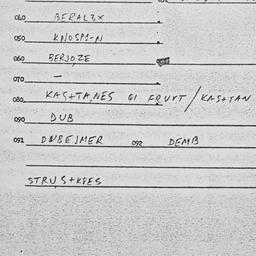 040 BERAL3X
050 KNOSPI-N
060 BERJOZE
070 —
080 KASHTANES GI FRUYT / KASHTAN
090 DUB
091 DNBEJMER 092 DEMB
STRUS+KPES